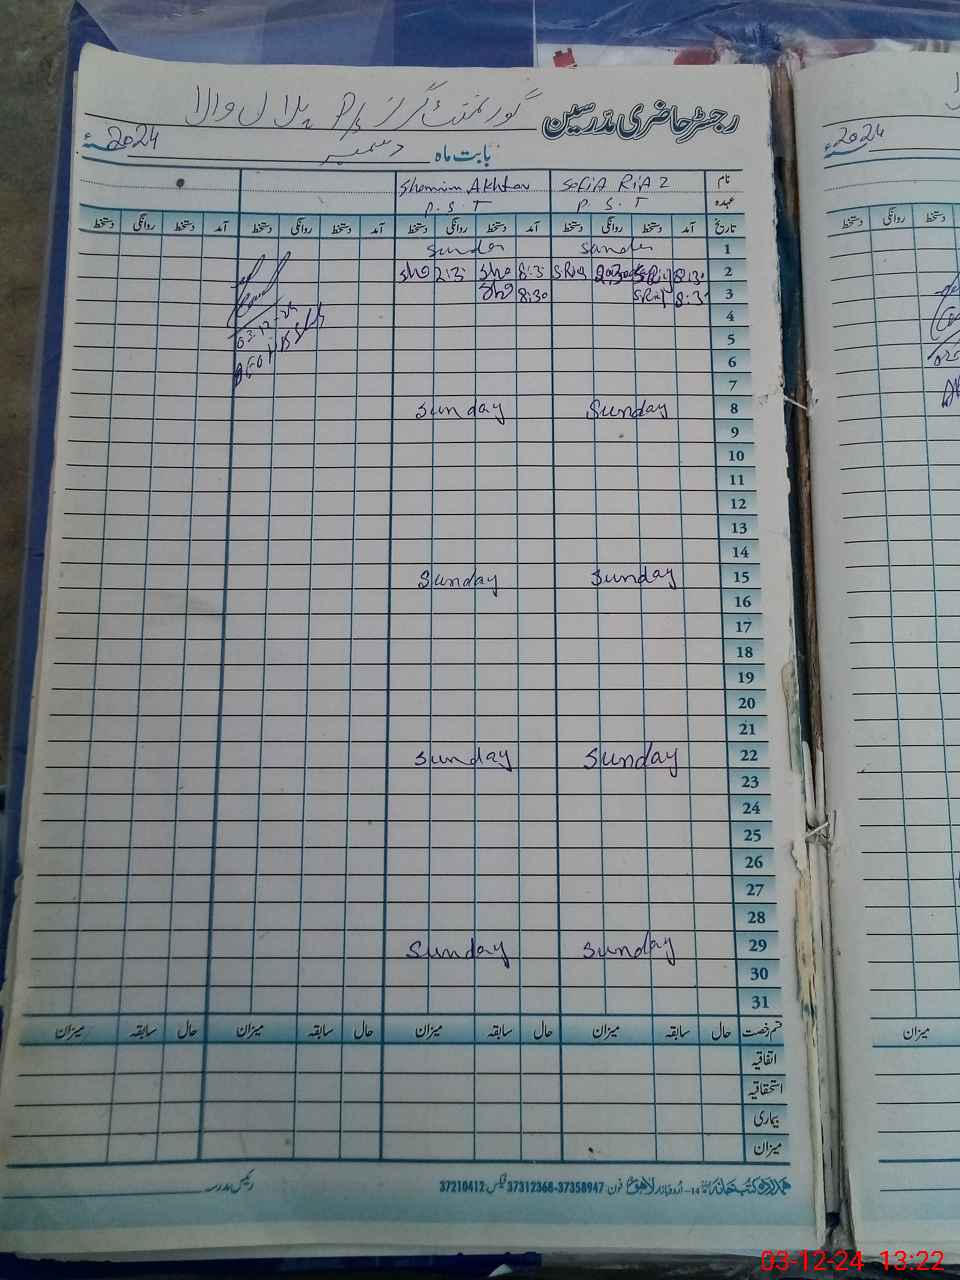 رجسٹر حاضری مدرسین گورنمنٹ گرلز P/s پلال والا
بابت ماہ دسمبر 2024ء
نام Sofia Riaz Shamim Akhtar
عہدہ P. S. T P. S. T
تاریخ آمد دستخط روانگی دستخط آمد دستخط روانگی دستخط آمد دستخط روانگی دستخط آمد دستخط روانگی دستخط
1 Sunday Sunday
2 8:30 SRiaz SRia 8:3 Sha 2:3 Sha
3 8:3 SRiaz 8:30 Sha
03-12-24
4
5
6
7
8 Sunday Sunday
9
10
11
12
13
14
15 Sunday Sunday
16
17
18
19
20
21
22 Sunday Sunday
23
24
25
26
27
28
29 Sunday Sunday
30
31
قسم رخصت حال سابقہ میزان حال سابقہ میزان حال سابقہ میزان حال سابقہ میزان
اتفاقیہ
استحقاقیہ
بیماری
میزان
ہمدرد کتب خانہ 14-اردو بازار لاہور فون 37358947-37312368 فیکس: 37210412 رئیس مدرسہ
2024ء
دستخط روانگی دستخط
میزان
03-12-24 13:22